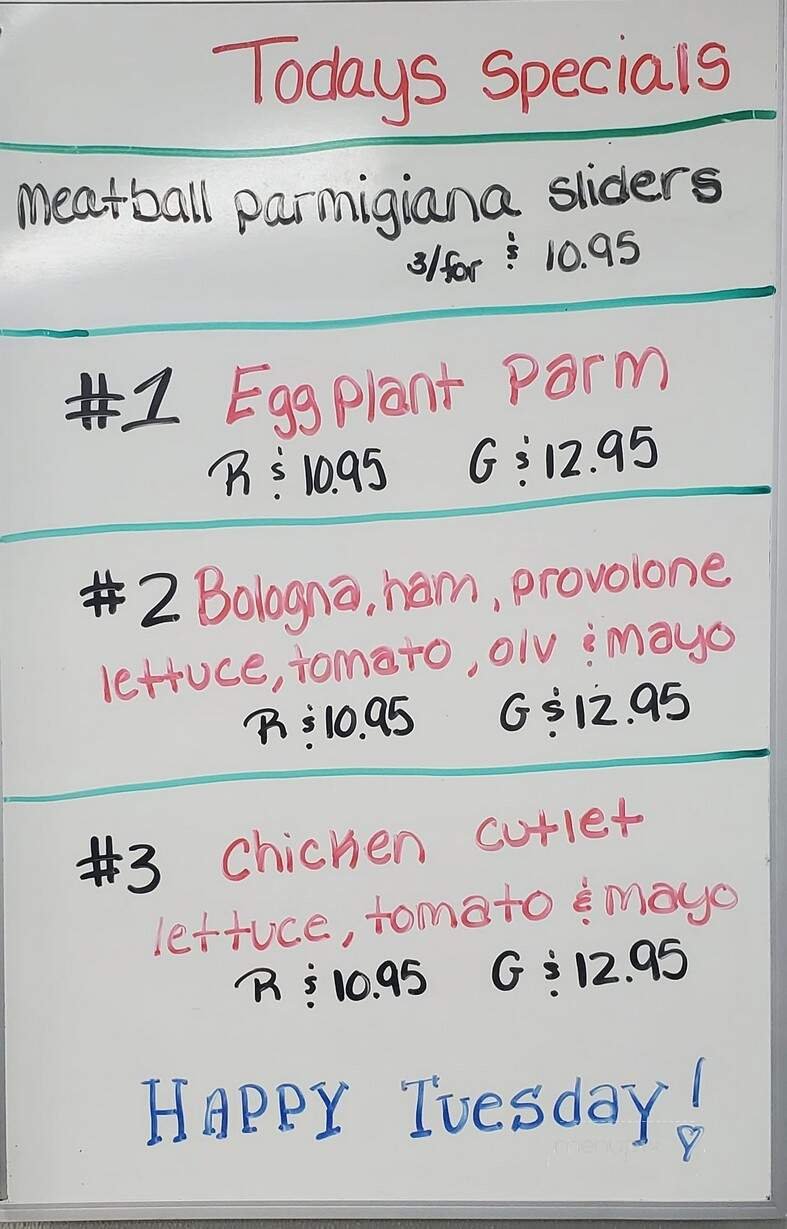 Todays specials
meatball parmigiana sliders
3/for $ 10.95
#1 Eggplant parm
R $ 10.95 G $ 12.95
#2 Bologna, ham, provolone
lettuce, tomato, olv & mayo
R $ 10.95 G $ 12.95
#3 Chicken cutlet
lettuce, tomato & mayo
R $ 10.95 G $ 12.95
HAPPY Tuesday!